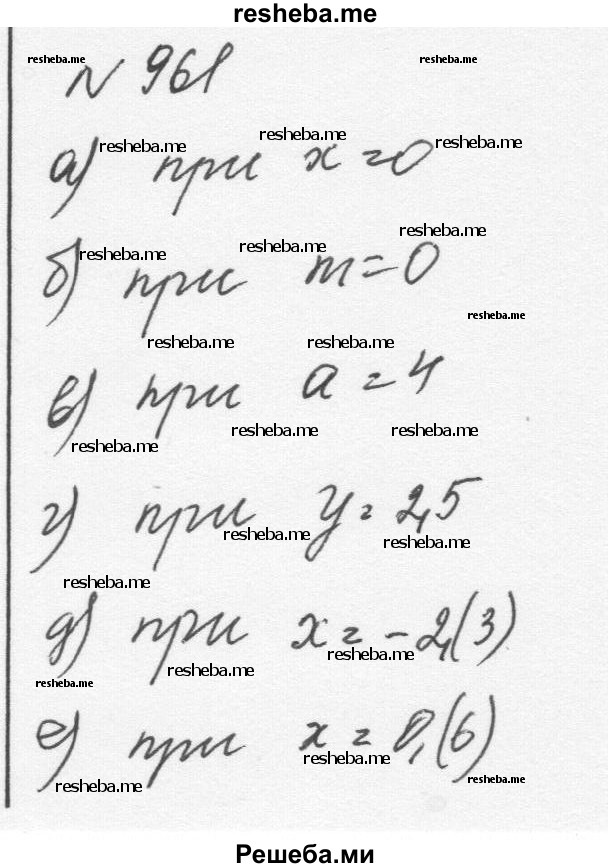 resheba.me
resheba.me resheba.me
N 961
resheba.me resheba.me resheba.me
а) при x = 0
resheba.me resheba.me resheba.me
б) при m = 0
resheba.me
resheba.me resheba.me
в) при a = 4
resheba.me resheba.me resheba.me
г) при y = 2,5
resheba.me resheba.me
resheba.me
д) при x = -2,(3)
resheba.me resheba.me resheba.me
е) при x = 0,(6)
resheba.me resheba.me resheba.me
Решеба.ми